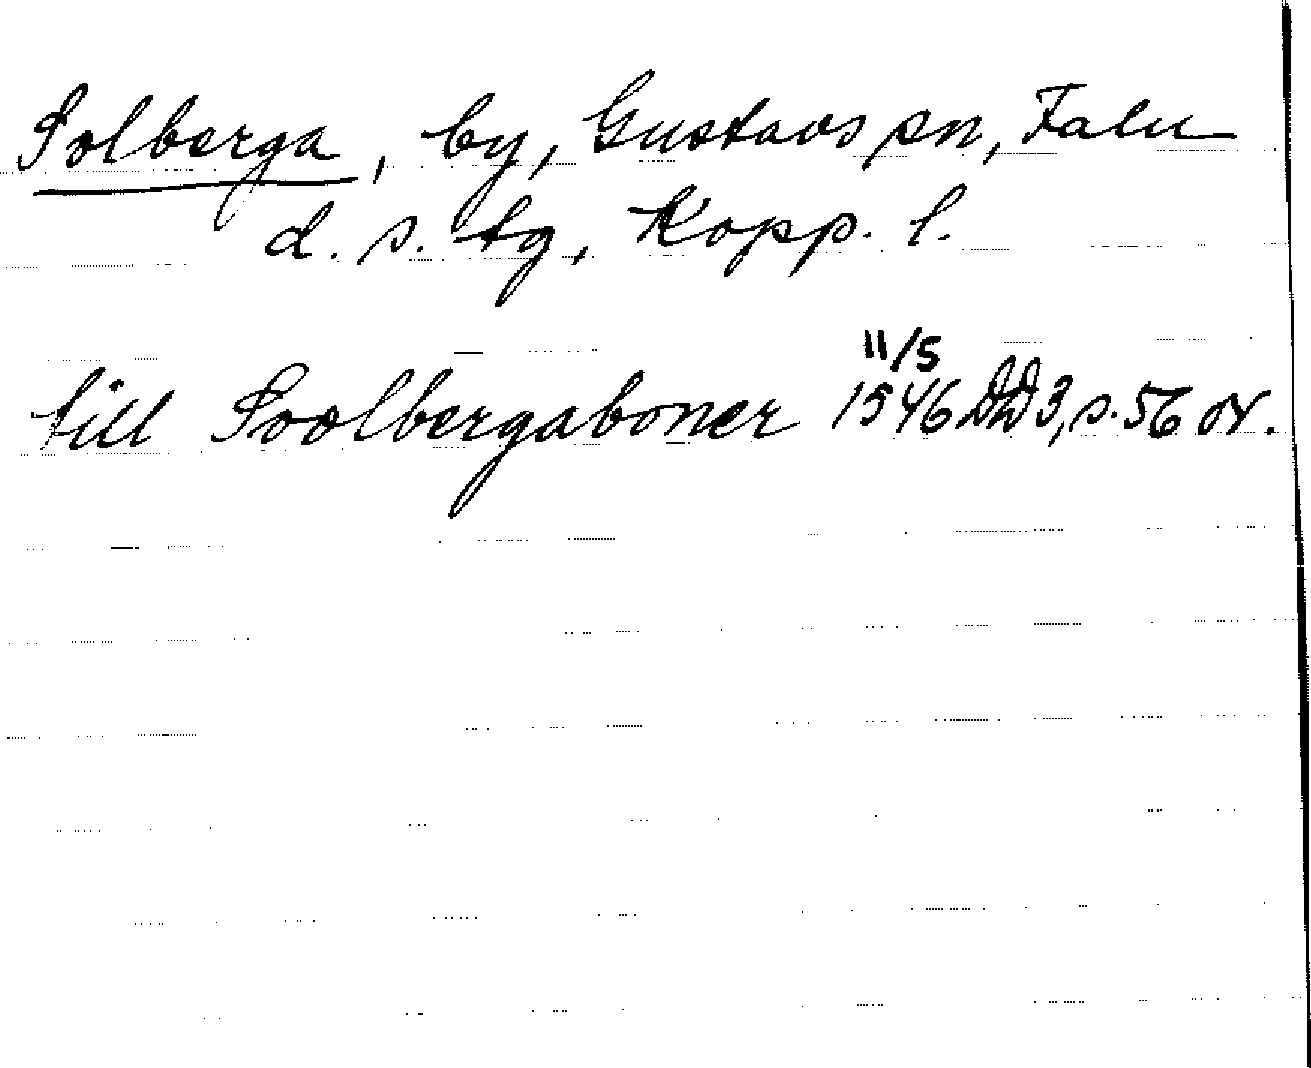 Solberga, by, Gustavs sn, Falu
d. s. tg, Kopp. l.
till Soolbergaboner 11/5 1546 DD 3, s. 56 or.